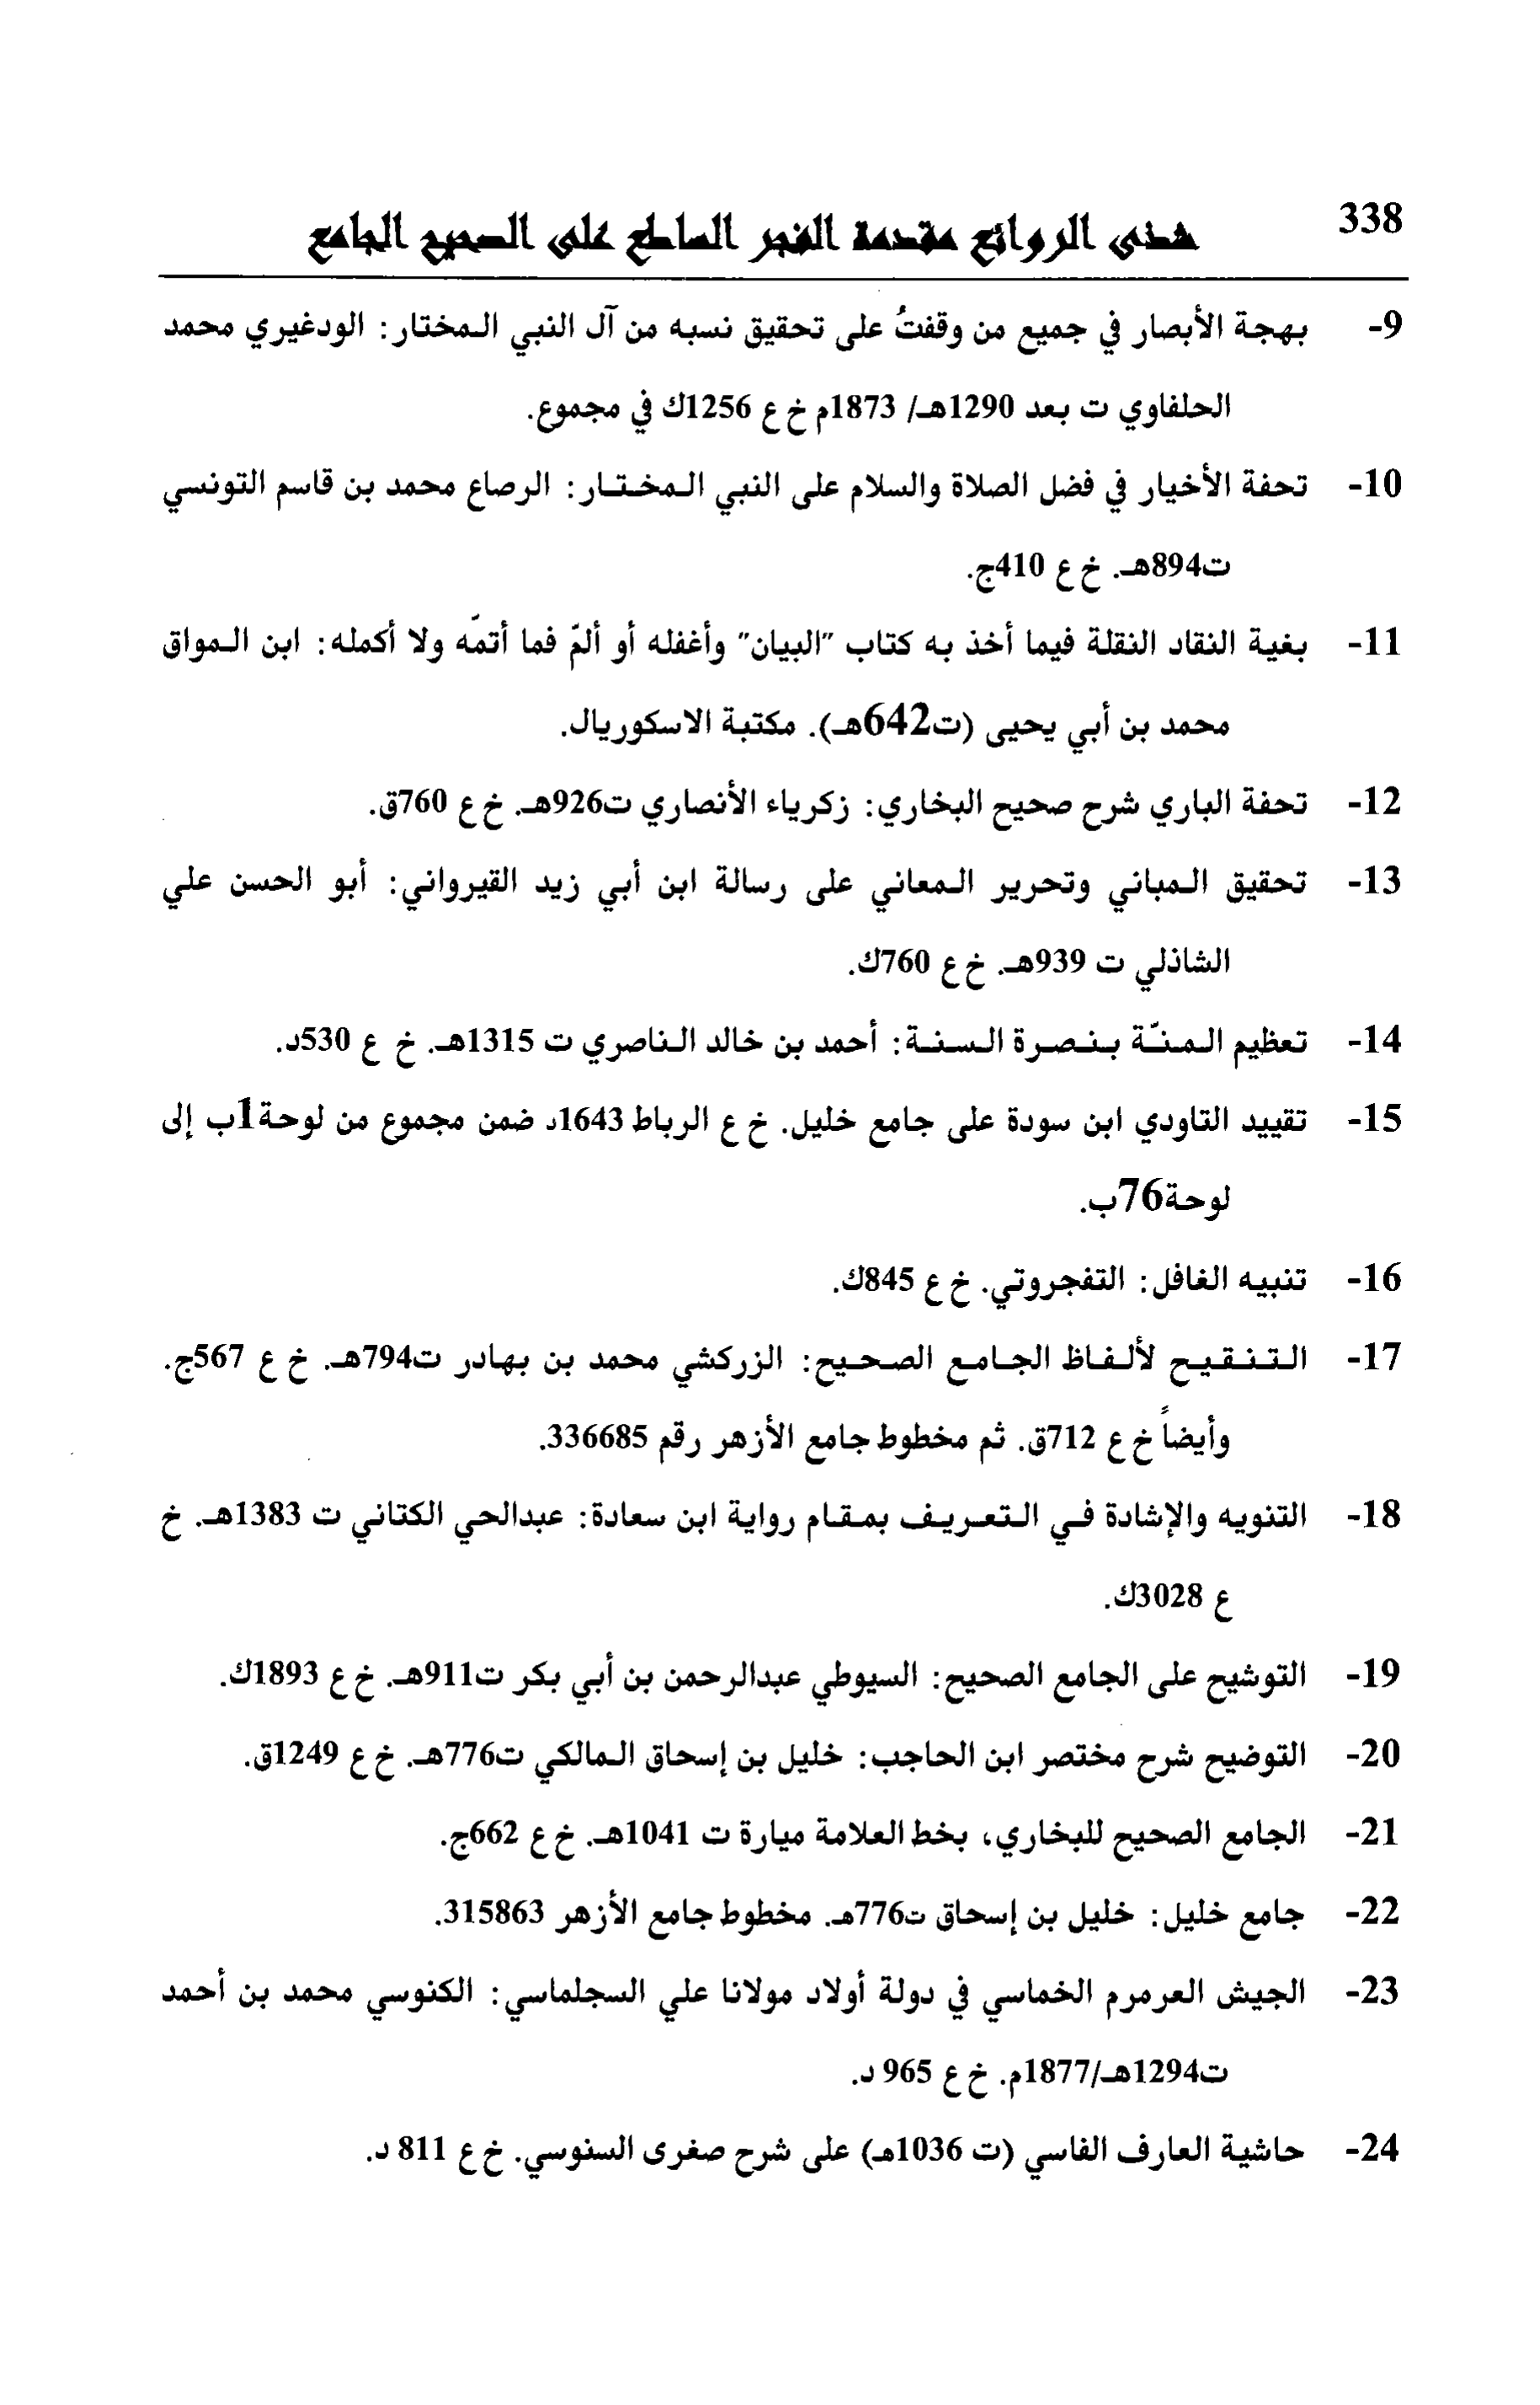 338
شذى الروائح مقدمة الفجر الساطع على الصحيح الجامع
9- بهجة الأبصار في جميع من وقفتُ على تحقيق نسبه من آل النبي المختار: الودغيري محمد
الحلفاوي ت بعد 1290هـ/ 1873م خ ع 1256ك في مجموع.
10- تحفة الأخيار في فضل الصلاة والسلام على النبي المختار: الرصاع محمد بن قاسم التونسي
ت894هـ. خ ع 410ج.
11- بغية النقاد النقلة فيما أخذ به كتاب "البيان" وأغفله أو ألمّ فما أتمّه ولا أكمله: ابن المواق
محمد بن أبي يحيى (ت642هـ). مكتبة الاسكوريال.
12- تحفة الباري شرح صحيح البخاري: زكرياء الأنصاري ت926هـ. خ ع 760ق.
13- تحقيق المباني وتحرير المعاني على رسالة ابن أبي زيد القيرواني: أبو الحسن علي
الشاذلي ت 939هـ. خ ع 760ك.
14- تعظيم المنّة بنصرة السنة: أحمد بن خالد الناصري ت 1315هـ. خ ع 530د.
15- تقييد التاودي ابن سودة على جامع خليل. خ ع الرباط 1643د ضمن مجموع من لوحة1ب إلى
لوحة76ب.
16- تنبيه الغافل: التفجروتي. خ ع 845ك.
17- التنقيح لألفاظ الجامع الصحيح: الزركشي محمد بن بهادر ت794هـ. خ ع 567ج.
وأيضاً خ ع 712ق. ثم مخطوط جامع الأزهر رقم 336685.
18- التنويه والإشادة في التعريف بمقام رواية ابن سعادة: عبدالحي الكتاني ت 1383هـ. خ
ع 3028ك.
19- التوشيح على الجامع الصحيح: السيوطي عبدالرحمن بن أبي بكر ت911هـ. خ ع 1893ك.
20- التوضيح شرح مختصر ابن الحاجب: خليل بن إسحاق المالكي ت776هـ. خ ع 1249ق.
21- الجامع الصحيح للبخاري، بخط العلامة ميارة ت 1041هـ. خ ع 662ج.
22- جامع خليل: خليل بن إسحاق ت776هـ. مخطوط جامع الأزهر 315863.
23- الجيش العرمرم الخماسي في دولة أولاد مولانا علي السجلماسي: الكنوسي محمد بن أحمد
ت1294هـ/1877م. خ ع 965 د.
24- حاشية العارف الفاسي (ت 1036هـ) على شرح صغرى السنوسي. خ ع 811 د.